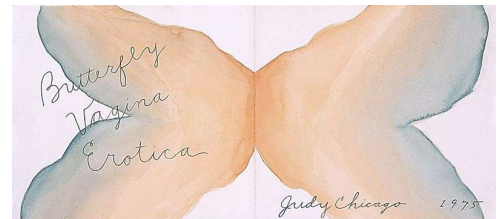 Butterfly
Vagina
Erotica
Judy Chicago 1975